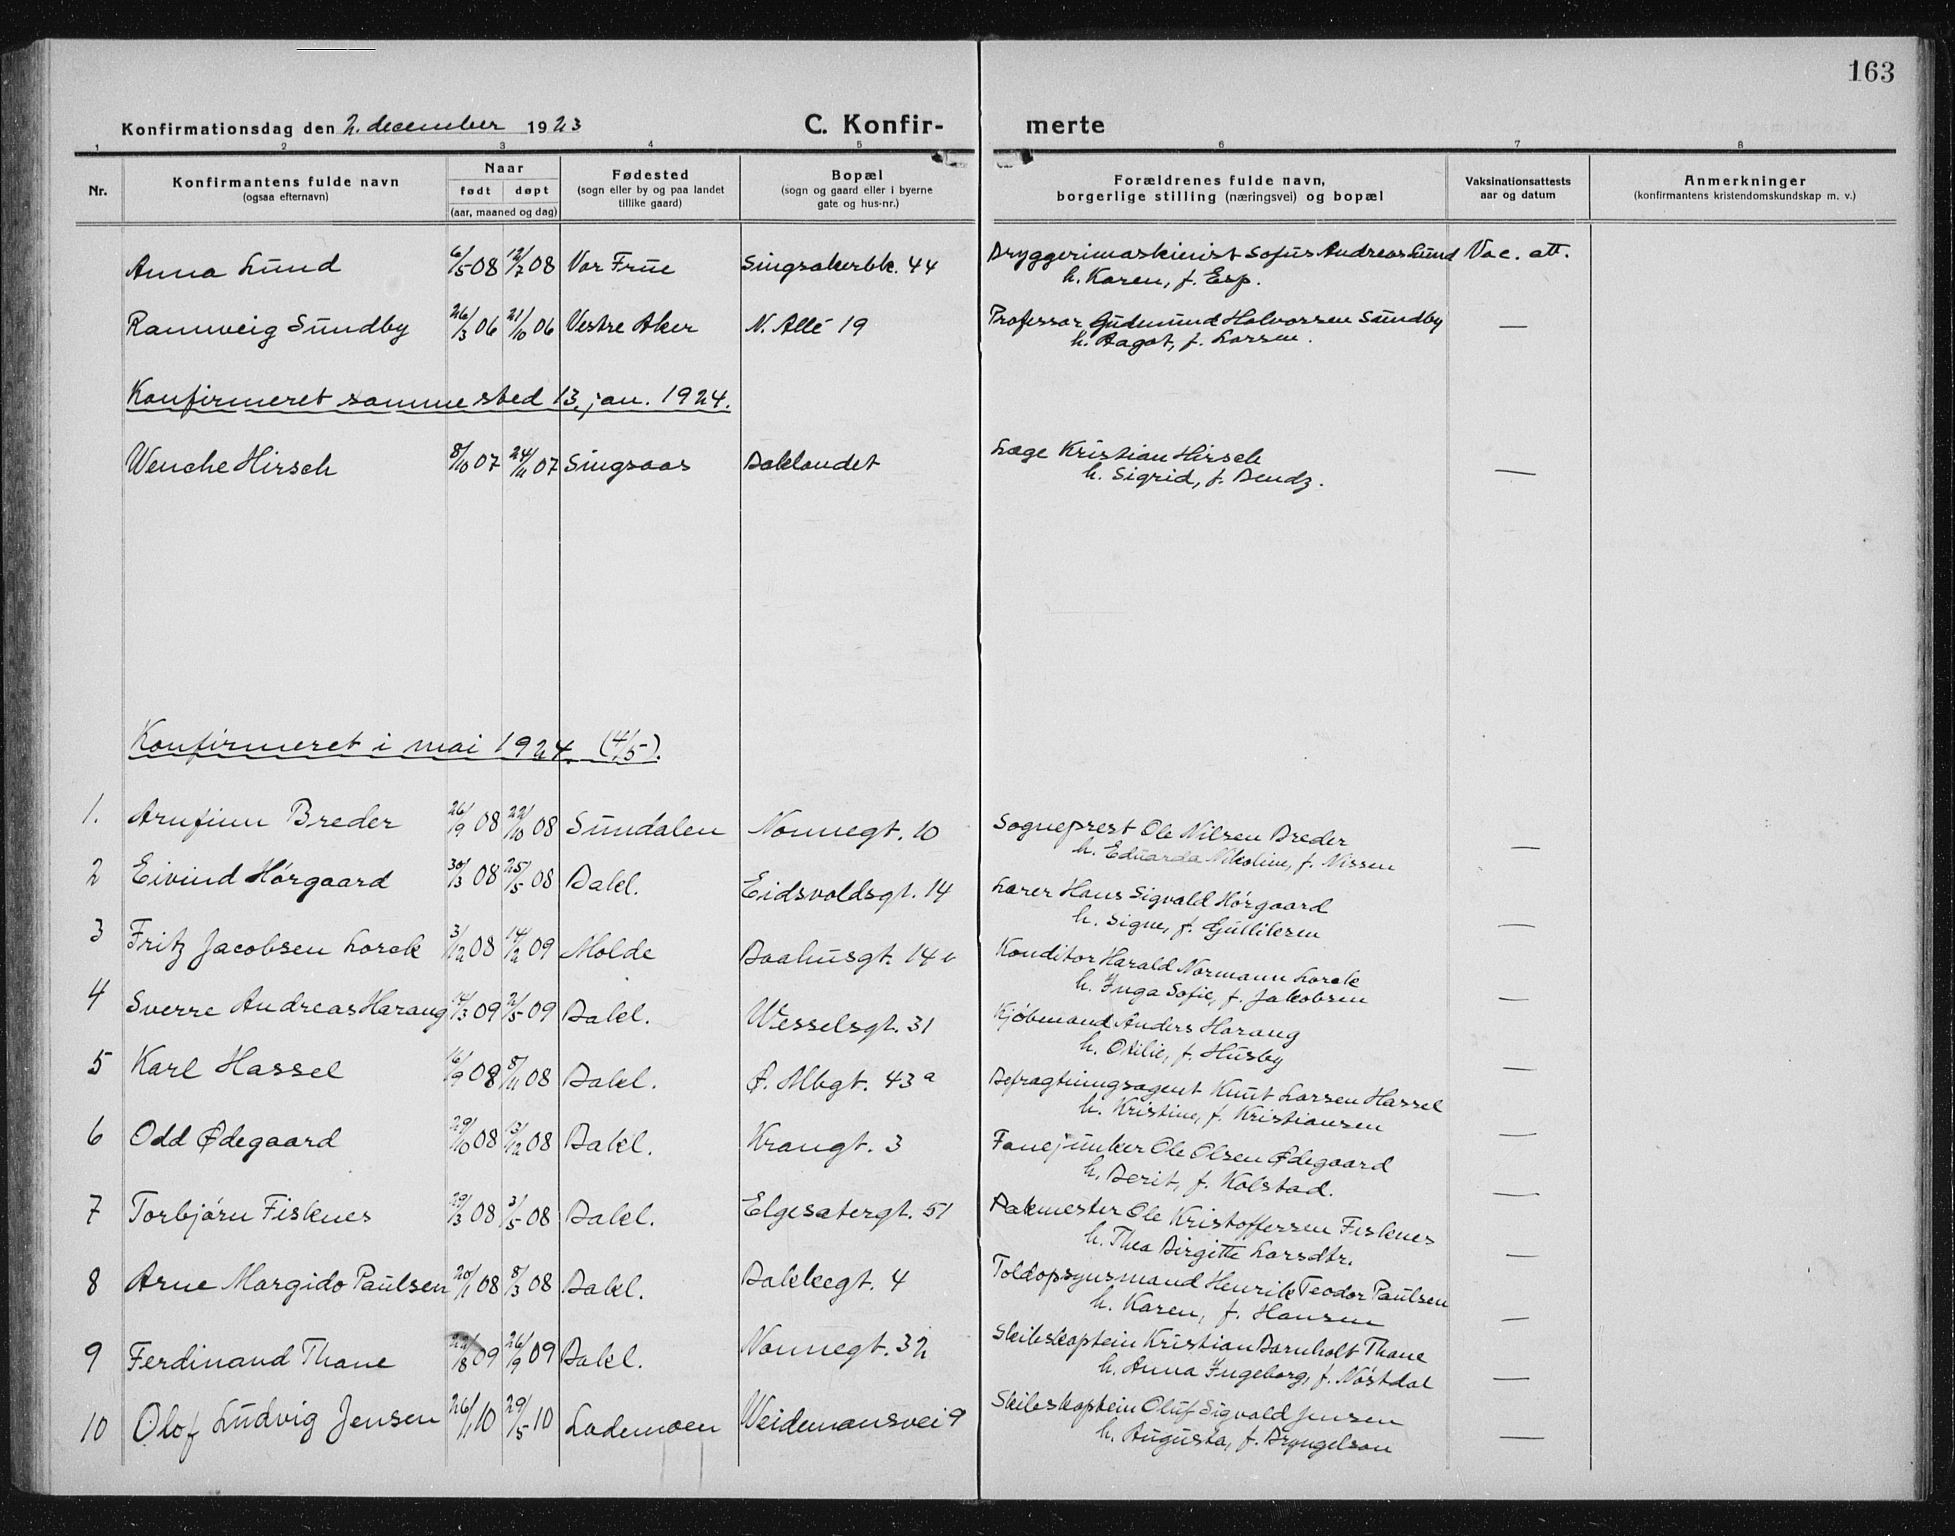 163
Konfirmationsdag den 2. december 1923 C. Konfir- merte
1 2 3 4 5 6 7 8
Nr. Konfirmantens fulde navn (ogsaa efternavn) Naar født døpt (aar, maaned og dag) Fødested (sogn eller by og paa landet tillike gaard) Bopæl (sogn og gaard eller i byerne gate og hus-nr.) Forældrenes fulde navn, borgerlige stilling (næringsvei) og bopæl Vaksinationsattests aar og datum Anmerkninger (konfirmantens kristendomskundskap m. v.)
Anna Lund 6/5 08 12/7 08 Vor Frue Singsakerbk. 44 Bryggerimaskinist Sofus Andreas Lund Vac. att.
h. Karen, f. Esp.
Rannveig Sundby 26/3 06 21/10 06 Vestre Aker N. Allé 19 Professor Gudmund Halvorsen Sundby —
h. Aagot, f. Larsen.
Konfirmeret samme sted 13. jan. 1924.
Wenche Hirsch 8/10 07 24/11 07 Singsaas Baklandet Læge Kristian Hirsch —
h. Sigrid, f. Bendz.
Konfirmeret i mai 1924. (4/5).
1. Arnfinn Breder 26/9 08 22/10 08 Sundalen Nonnegt. 10 Sogneprest Ole Nilsen Breder —
h. Eduarda Nikoline, f. Nissen
2 Eivind Hørgaard 30/3 08 25/5 08 Bakl. Eidsvoldsgt. 14 Lærer Hans Sigvald Hørgaard —
h. Signe, f. Gulliksen
3 Fritz Jacobsen Lorck 3/12 08 14/2 09 Molde Baahusgt. 14 Konditor Harald Normann Lorck —
h. Inga Sofie, f. Jakobsen
4 Sverre Andreas Harang 14/3 09 2/5 09 Bakl. Wesselsgt. 31 Kjøbmand Anders Harang —
h. Otilie, f. Husby
5 Karl Hassel 16/9 08 8/11 08 Bakl. Ø. Mbgt. 43a Befragtningsagent Knut Larsen Hassel —
h. Kristine, f. Kristiansen
6 Odd Ødegaard 29/10 08 13/12 08 Bakl. Krangt. 3 Fanejunker Ole Olsen Ødegaard —
h. Berit, f. Kolstad.
7 Torbjørn Fisknes 29/3 08 3/5 08 Bakl. Elgesætergt. 51 Pakmester Ole Kristoffersen Fisknes —
h. Thea Birgitte Larsdtr.
8 Arne Margido Paulsen 20/1 08 8/3 08 Bakl. Bakkegt. 4 Toldopsynsmand Henrik Teodor Paulsen —
h. Karen, f. Hansen
9 Ferdinand Thane 22/8 09 26/9 09 Bakl. Nonnegt. 32 Skibskaptein Kristian Barnholt Thane —
h. Anna Ingeborg, f. Nøstdal
10 Olof Ludvig Jensen 26/1 10 29/5 10 Lademoen Weidemansvei 9 Skibskaptein Oluf Sigvald Jensen —
h. Augusta, f. Bryngelson